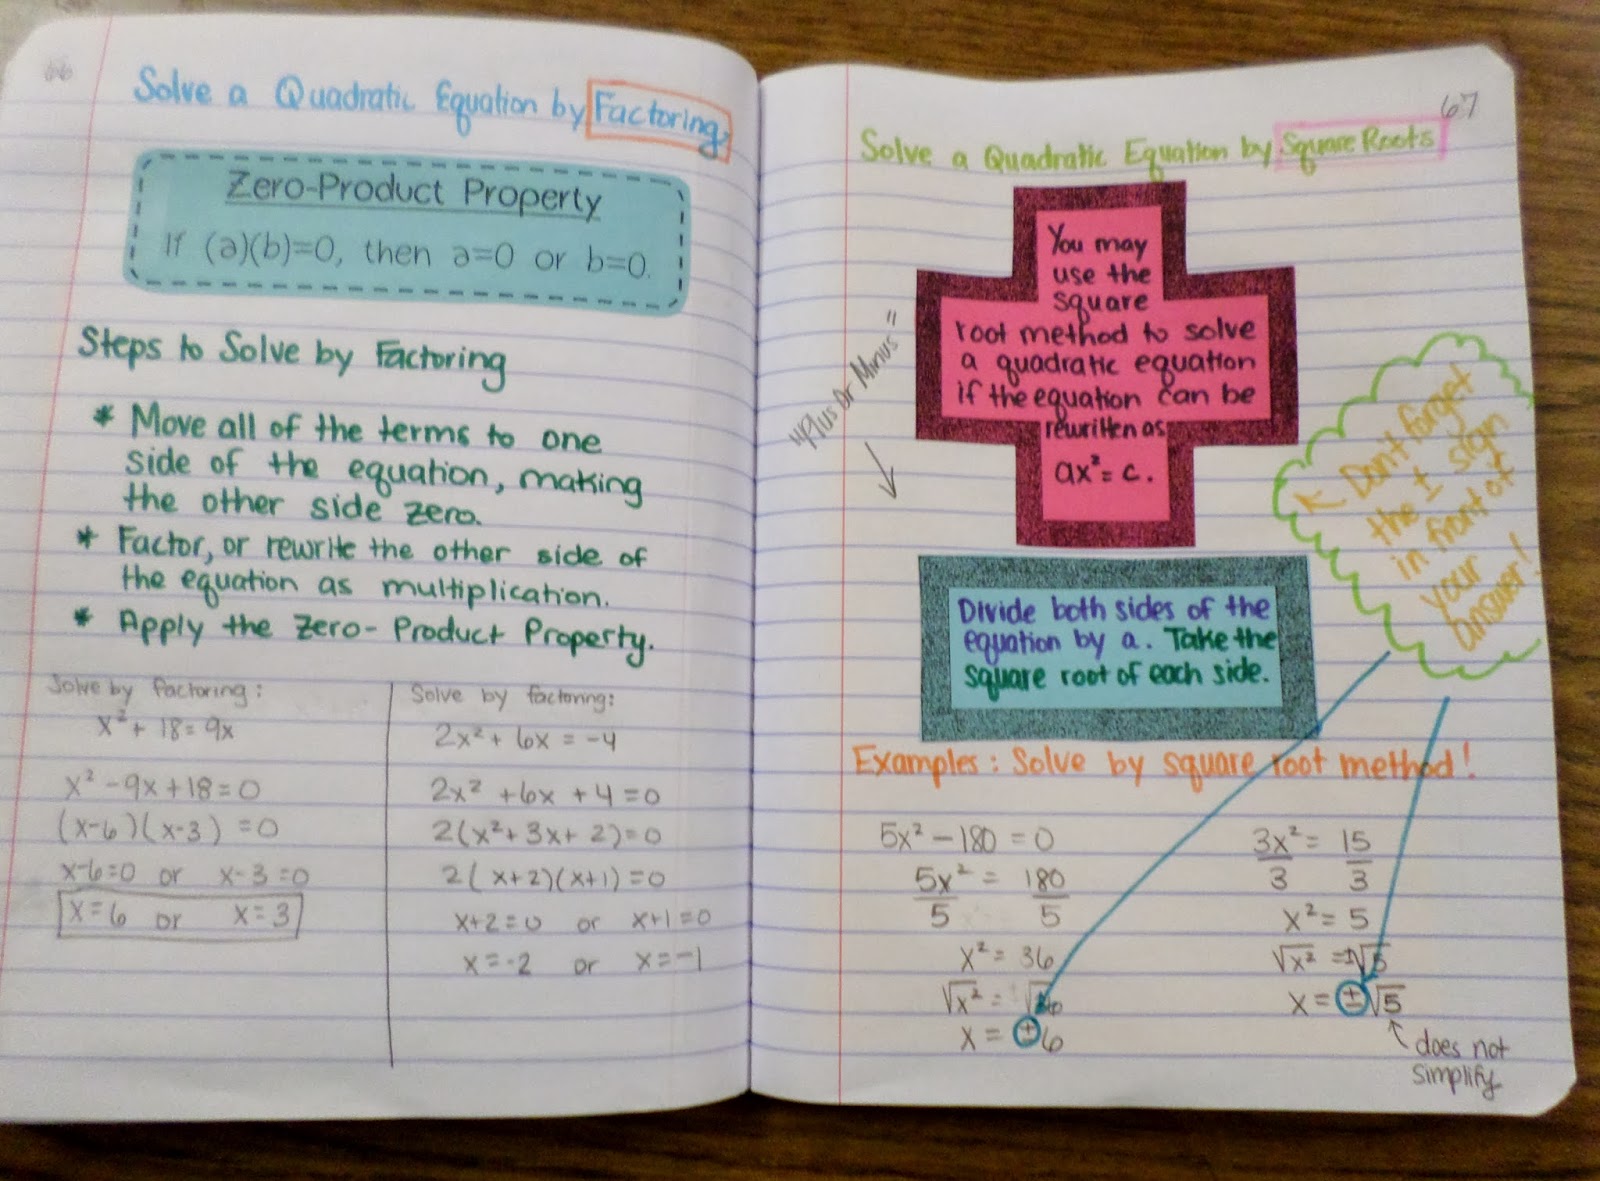 66
Solve a Quadratic Equation by Factoring.
Zero-Product Property
If (a)(b)=0, then a=0 or b=0.
Steps to Solve by Factoring
* Move all of the terms to one
side of the equation, making
the other side zero.
* Factor, or rewrite the other side of
the equation as multiplication.
* Apply the Zero-Product Property.
Solve by factoring:
x² + 18 = 9x
x² - 9x + 18 = 0
(x-6)(x-3) = 0
x-6=0 or x-3=0
x=6 or x=3
Solve by factoring:
2x² + 6x = -4
2x² + 6x + 4 = 0
2(x² + 3x + 2) = 0
2(x+2)(x+1) = 0
x+2=0 or x+1=0
x=-2 or x=-1
67
Solve a Quadratic Equation by Square Roots
You may
use the
square
root method to solve
a quadratic equation
if the equation can be
rewritten as
ax² = c.
"Plus Or Minus"
Don't forget
the ± sign
in front of
your
answer!
Divide both sides of the
equation by a. Take the
square root of each side.
Examples: Solve by square root method!
5x² - 180 = 0
5x² = 180
5 5
x² = 36
√x² = √36
x = ±6
3x² = 15
3 3
x² = 5
√x² = ±√5
x = ±√5
does not
simplify